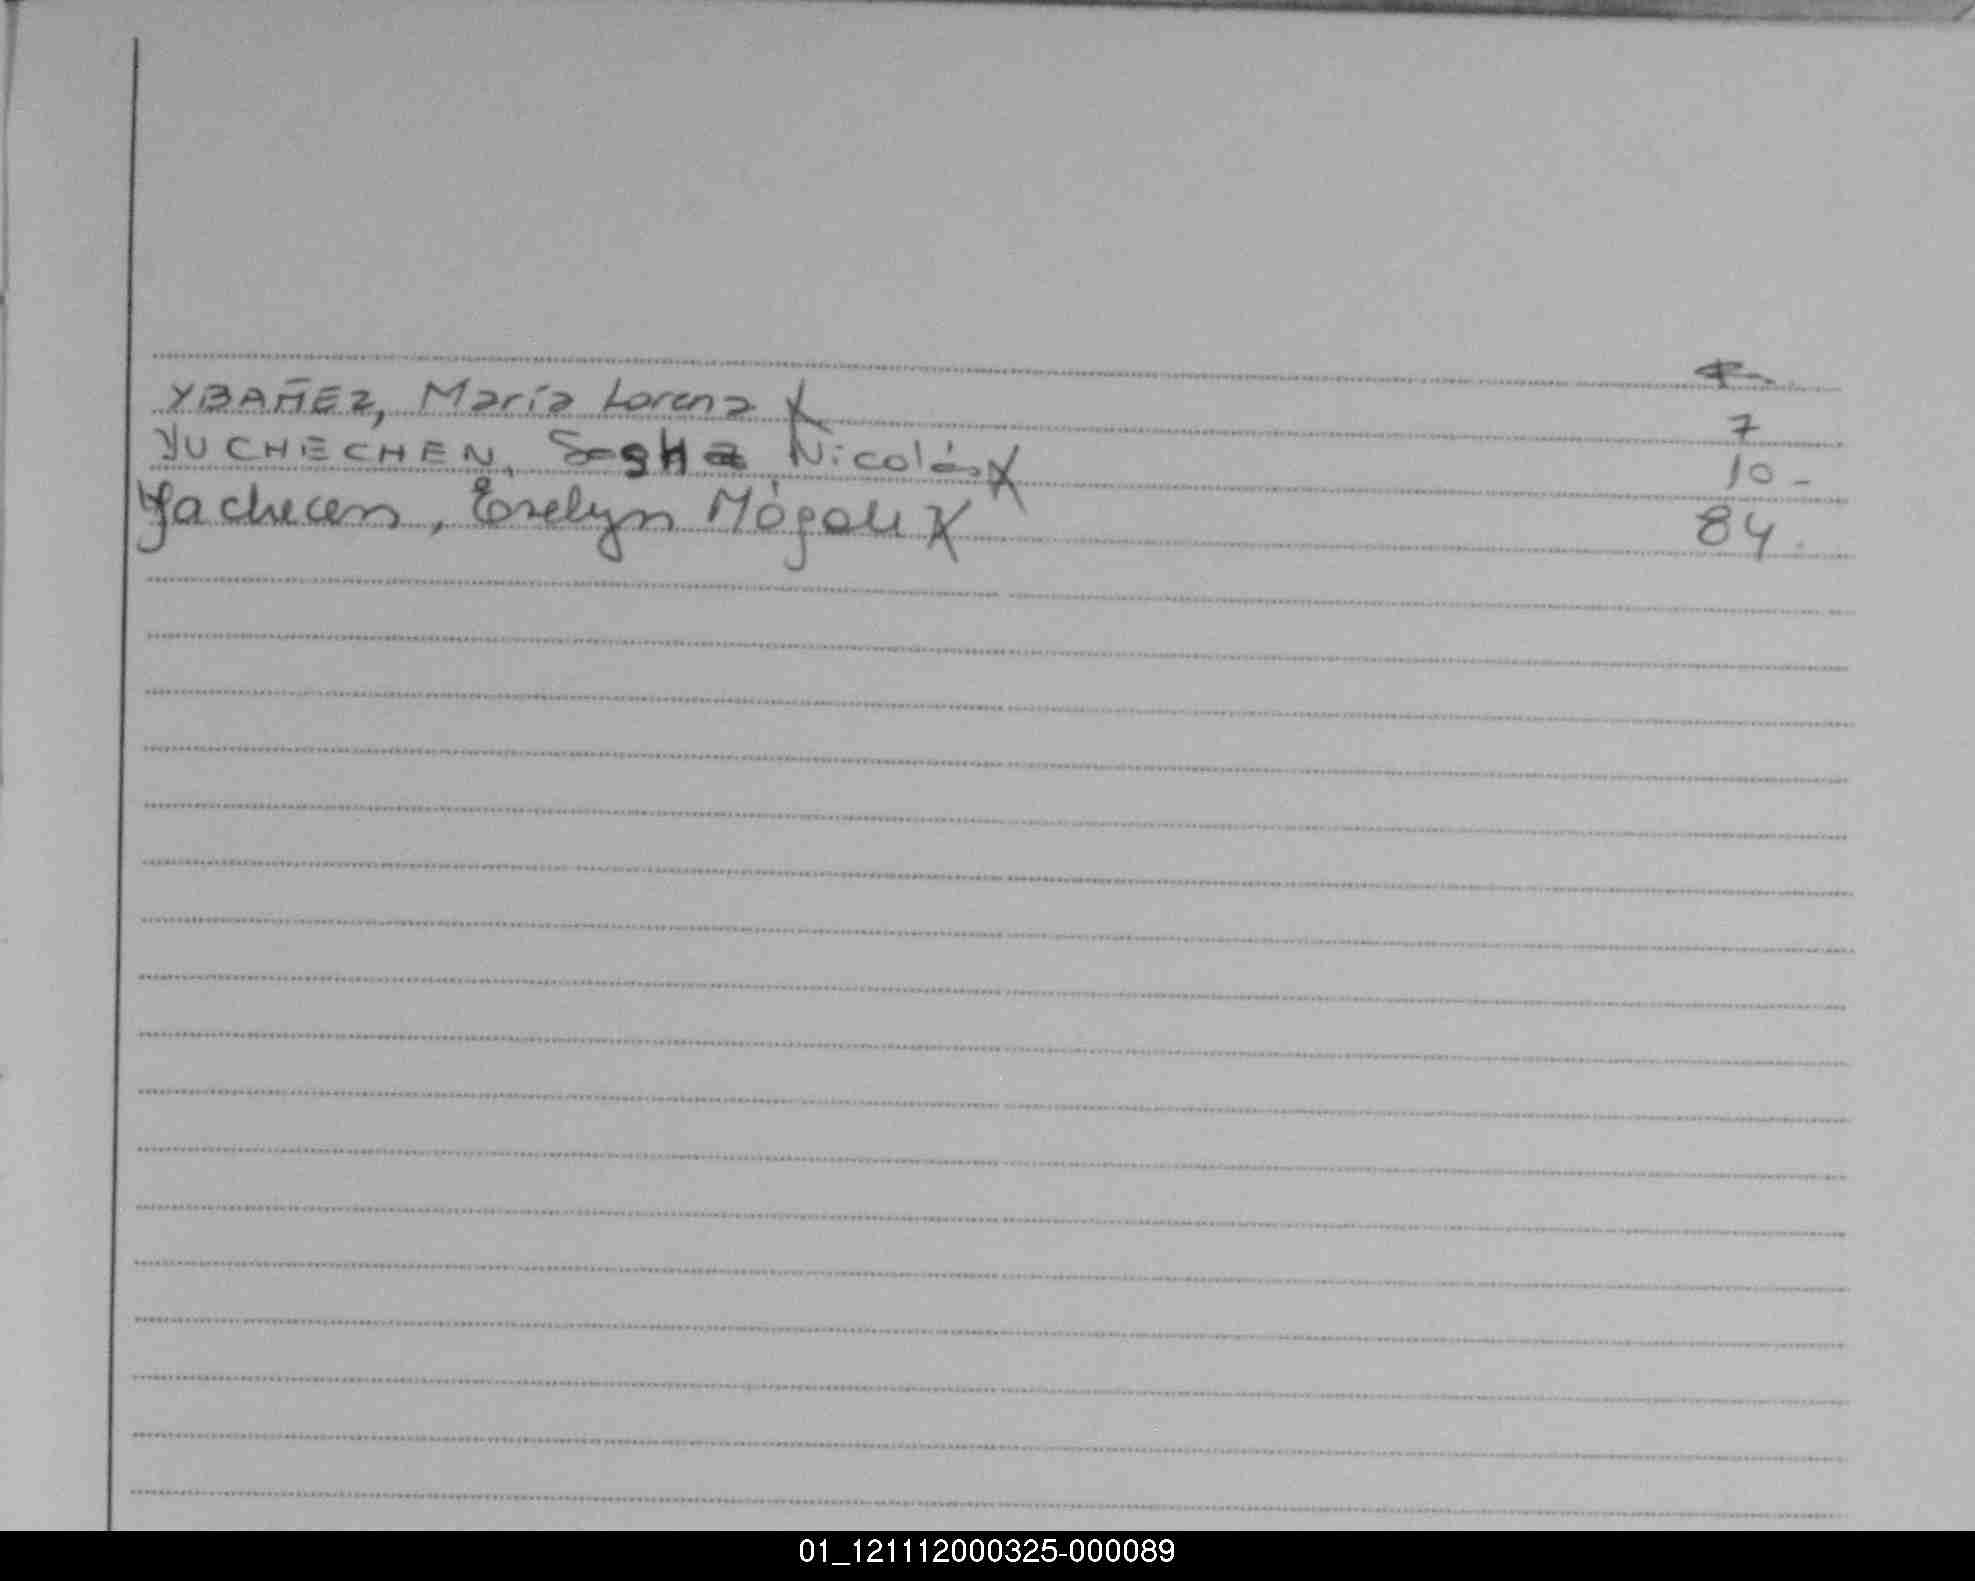 YBAÑEZ, María Lorena X 7
YUCHECHEN, Sasha Nicolás X 10 -
Yachecen, Evelyn Mágali X 84.
01_121112000325-000089